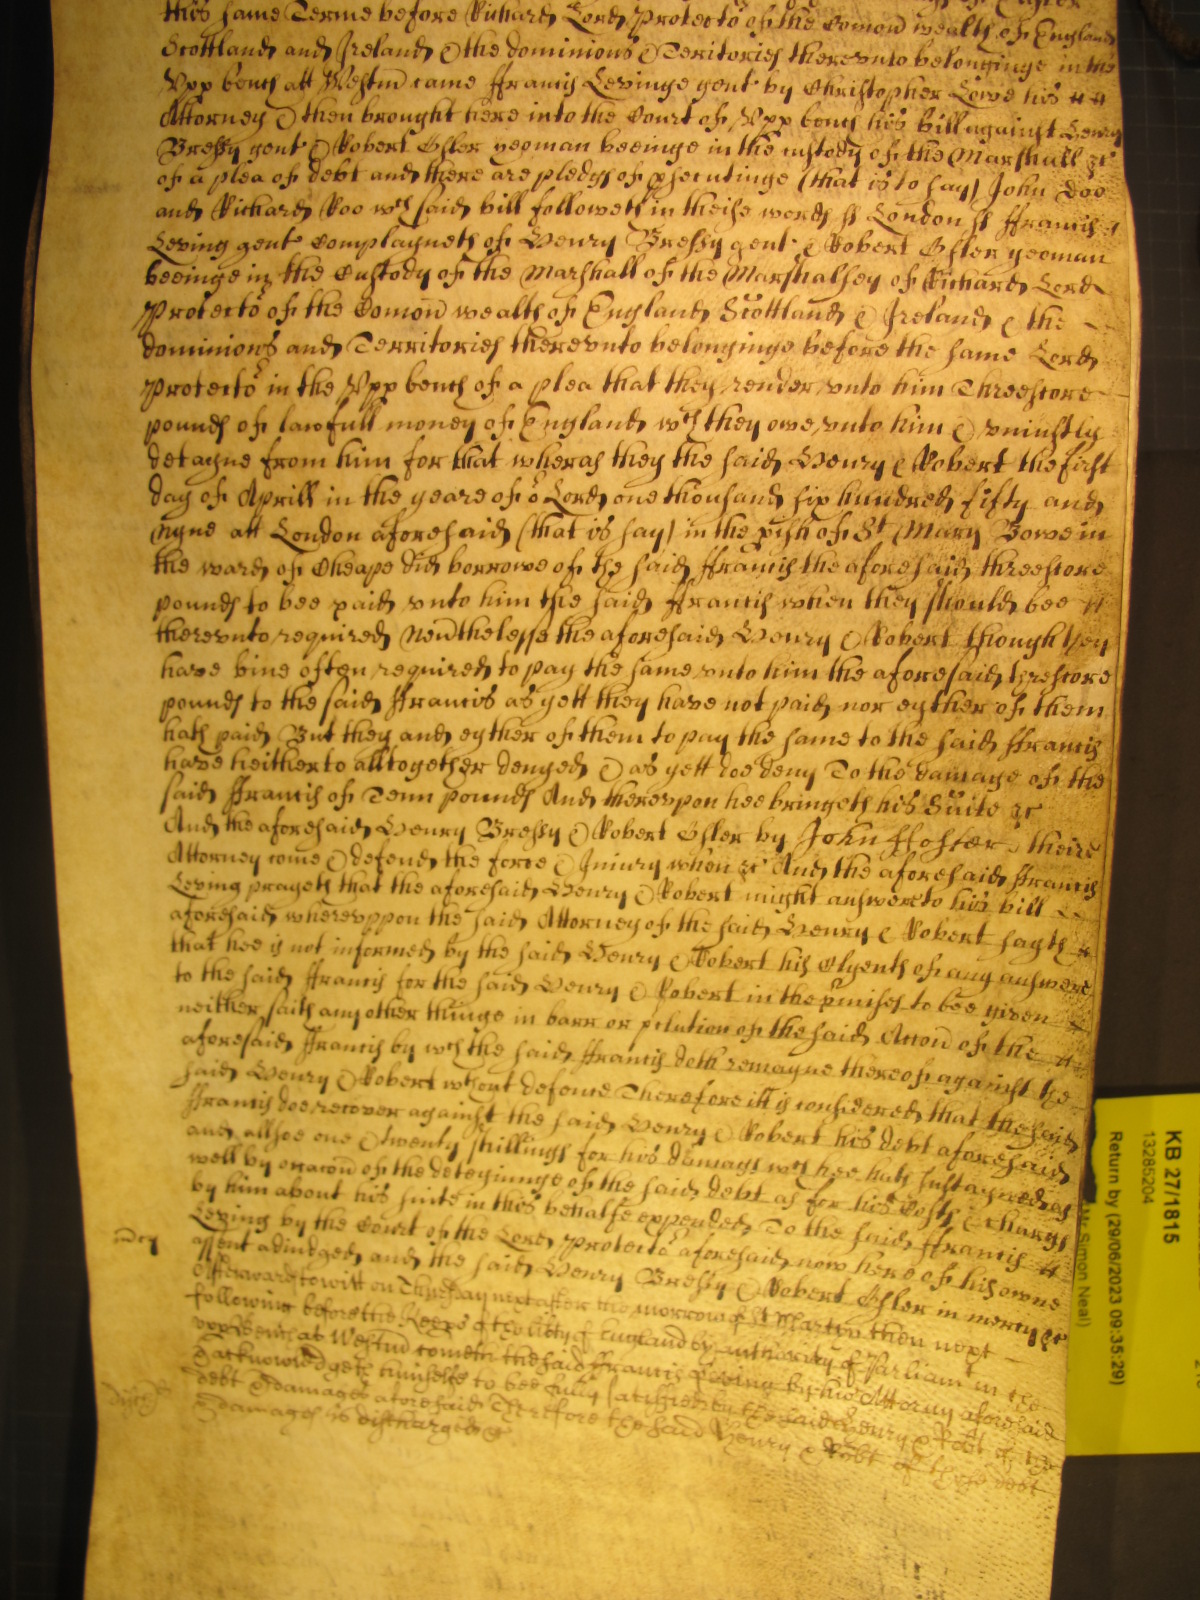 this same Terme before Richard Lord Protector of the Comon wealth of England
Scottland and Ireland & the dominions & Teritories therevnto belonginge in the
Vpp bench att Westm came ffrancis Levinge gent by Christopher Lowe his
Attorney & then brought here into the Court of Vpp bench his bill against Henry
Bressy gent & Robert Osler yeoman beeinge in the custody of the Marshall &c
of a plea of debt and there are pledges of psecutinge (that is to say) John Doo
and Richard Roo wch said bill followeth in theise words ss London ss ffrancis
Leving gent Complayneth of Henry Bressy gent & Robert Osler yeoman
beeinge in the Custody of the Marshall of the Marshalsey of Richard Lord
Protector of the Comon wealth of England Scottland & Ireland & the
dominions and Territories therevnto belonginge before the same Lord
Protector in the Vpp bench of a plea that they render vnto him Threescore
pounds of lawfull money of England wch they owe vnto him & vniustly
detayne from him for that wheras they the said Henry & Robert the first
day of Aprill in the yeare of or Lord one thousand six hundred fifty and
nyne att London aforesaid (that is say) in the pish of St Mary Bowe in
the ward of Cheape did borrowe of the said ffrancis the aforesaid threescore
pounds to bee paid vnto him the said ffrancis when they should bee
therevnto required Nevthelesse the aforesaid Henry & Robert though they
have bine often required to pay the same vnto him the aforesaid threscore
pounds to the said ffrancis as yett they have not paid nor eyther of them
hath paid But they and eyther of them to pay the same to the said ffrancis
have heitherto alltogether denyed & as yett doe deny To the damage of the
said ffrancis of Tenn pounds And therevpon hee bringeth his Suite &c
And the aforesaid Henry Bressy & Robert Osler by John ffoster theire
Attorney come & defend the force & Iniury when &c And the aforesaid ffrancis
Leving prayeth that the aforesaid Henry & Robert might answere to his bill
aforesaid wherevppon the said Attorney of the said Henry & Robert sayth
that hee is not informed by the said Henry & Robert his Clyents of any answere
to the said ffrancis for the said Henry & Robert in the pmises to bee given
neither saith any other thinge in barr or pclution of the said Accon of the
aforesaid ffrancis by wch the said ffrancis doth remayne thereof against the
said Henry & Robert wthout defence Therefore itt is considered that the said
ffrancis doe recover against the said Henry & Robert his debt aforesaid
and allsoe one & twenty shillings for his damages wch hee hath sustayned as
well by occacon of the deteyninge of the said debt as for his Costs & Charges
by him about his suite in this behalfe expended To the said ffrancis
Leving by the Court of the Lord Protector aforesaid now here of his owne
assent adiudged and the said Henry Bressy & Robert Osler in mercy &c
mcy
Afterwards to witt on Thursday next after the morrow of St Martyn then next
following before the Keeps of the libty of England by authority of Parliamt in the
vpp Bench at Westm cometh the said ffrancis Leving by his Attorny aforesaid
& acknowledgeth himselfe to bee fully satisfied by the said Henry & Robt of the
debt & damages aforesaid Therefore the said Henry & Robt of those debt
& damages is discharged &c
KB 27/1815
13285204
Return by (29/06/2023 09:35:29)
Mr Simon Neal)